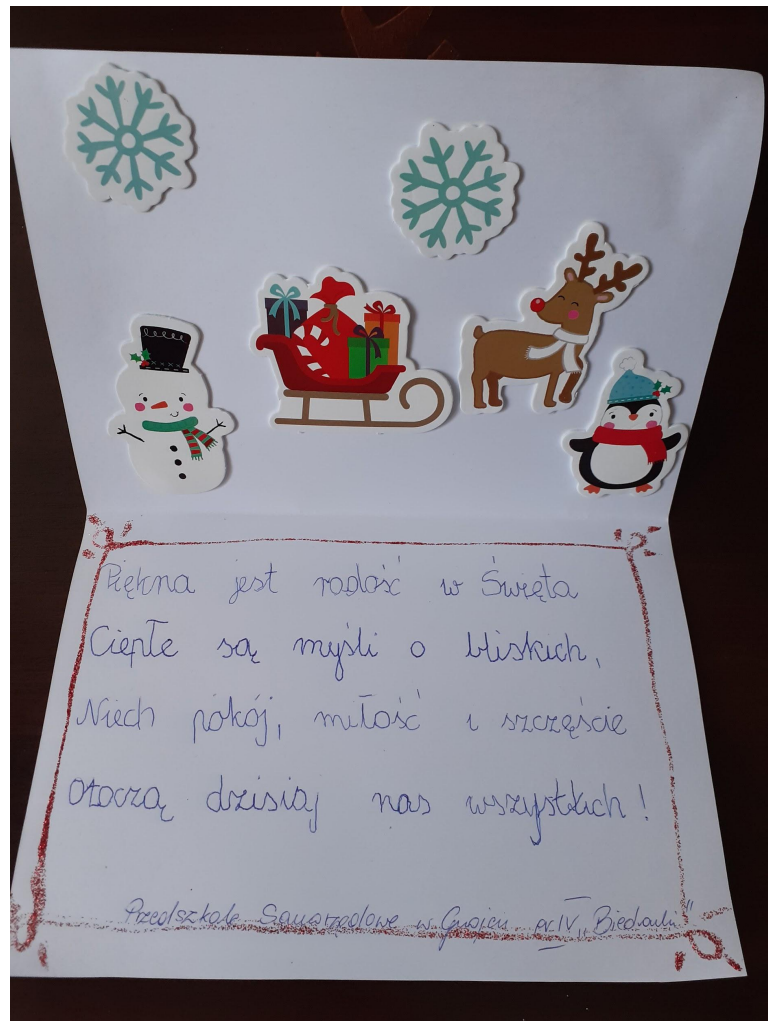 Piękna jest radość w Święta
Ciepłe są myśli o bliskich,
Niech pokój, miłość i szczęście
Otoczą dzisiaj nas wszystkich!
Przedszkole Samorządowe w Gnojcie gr. IV „Biedronki"